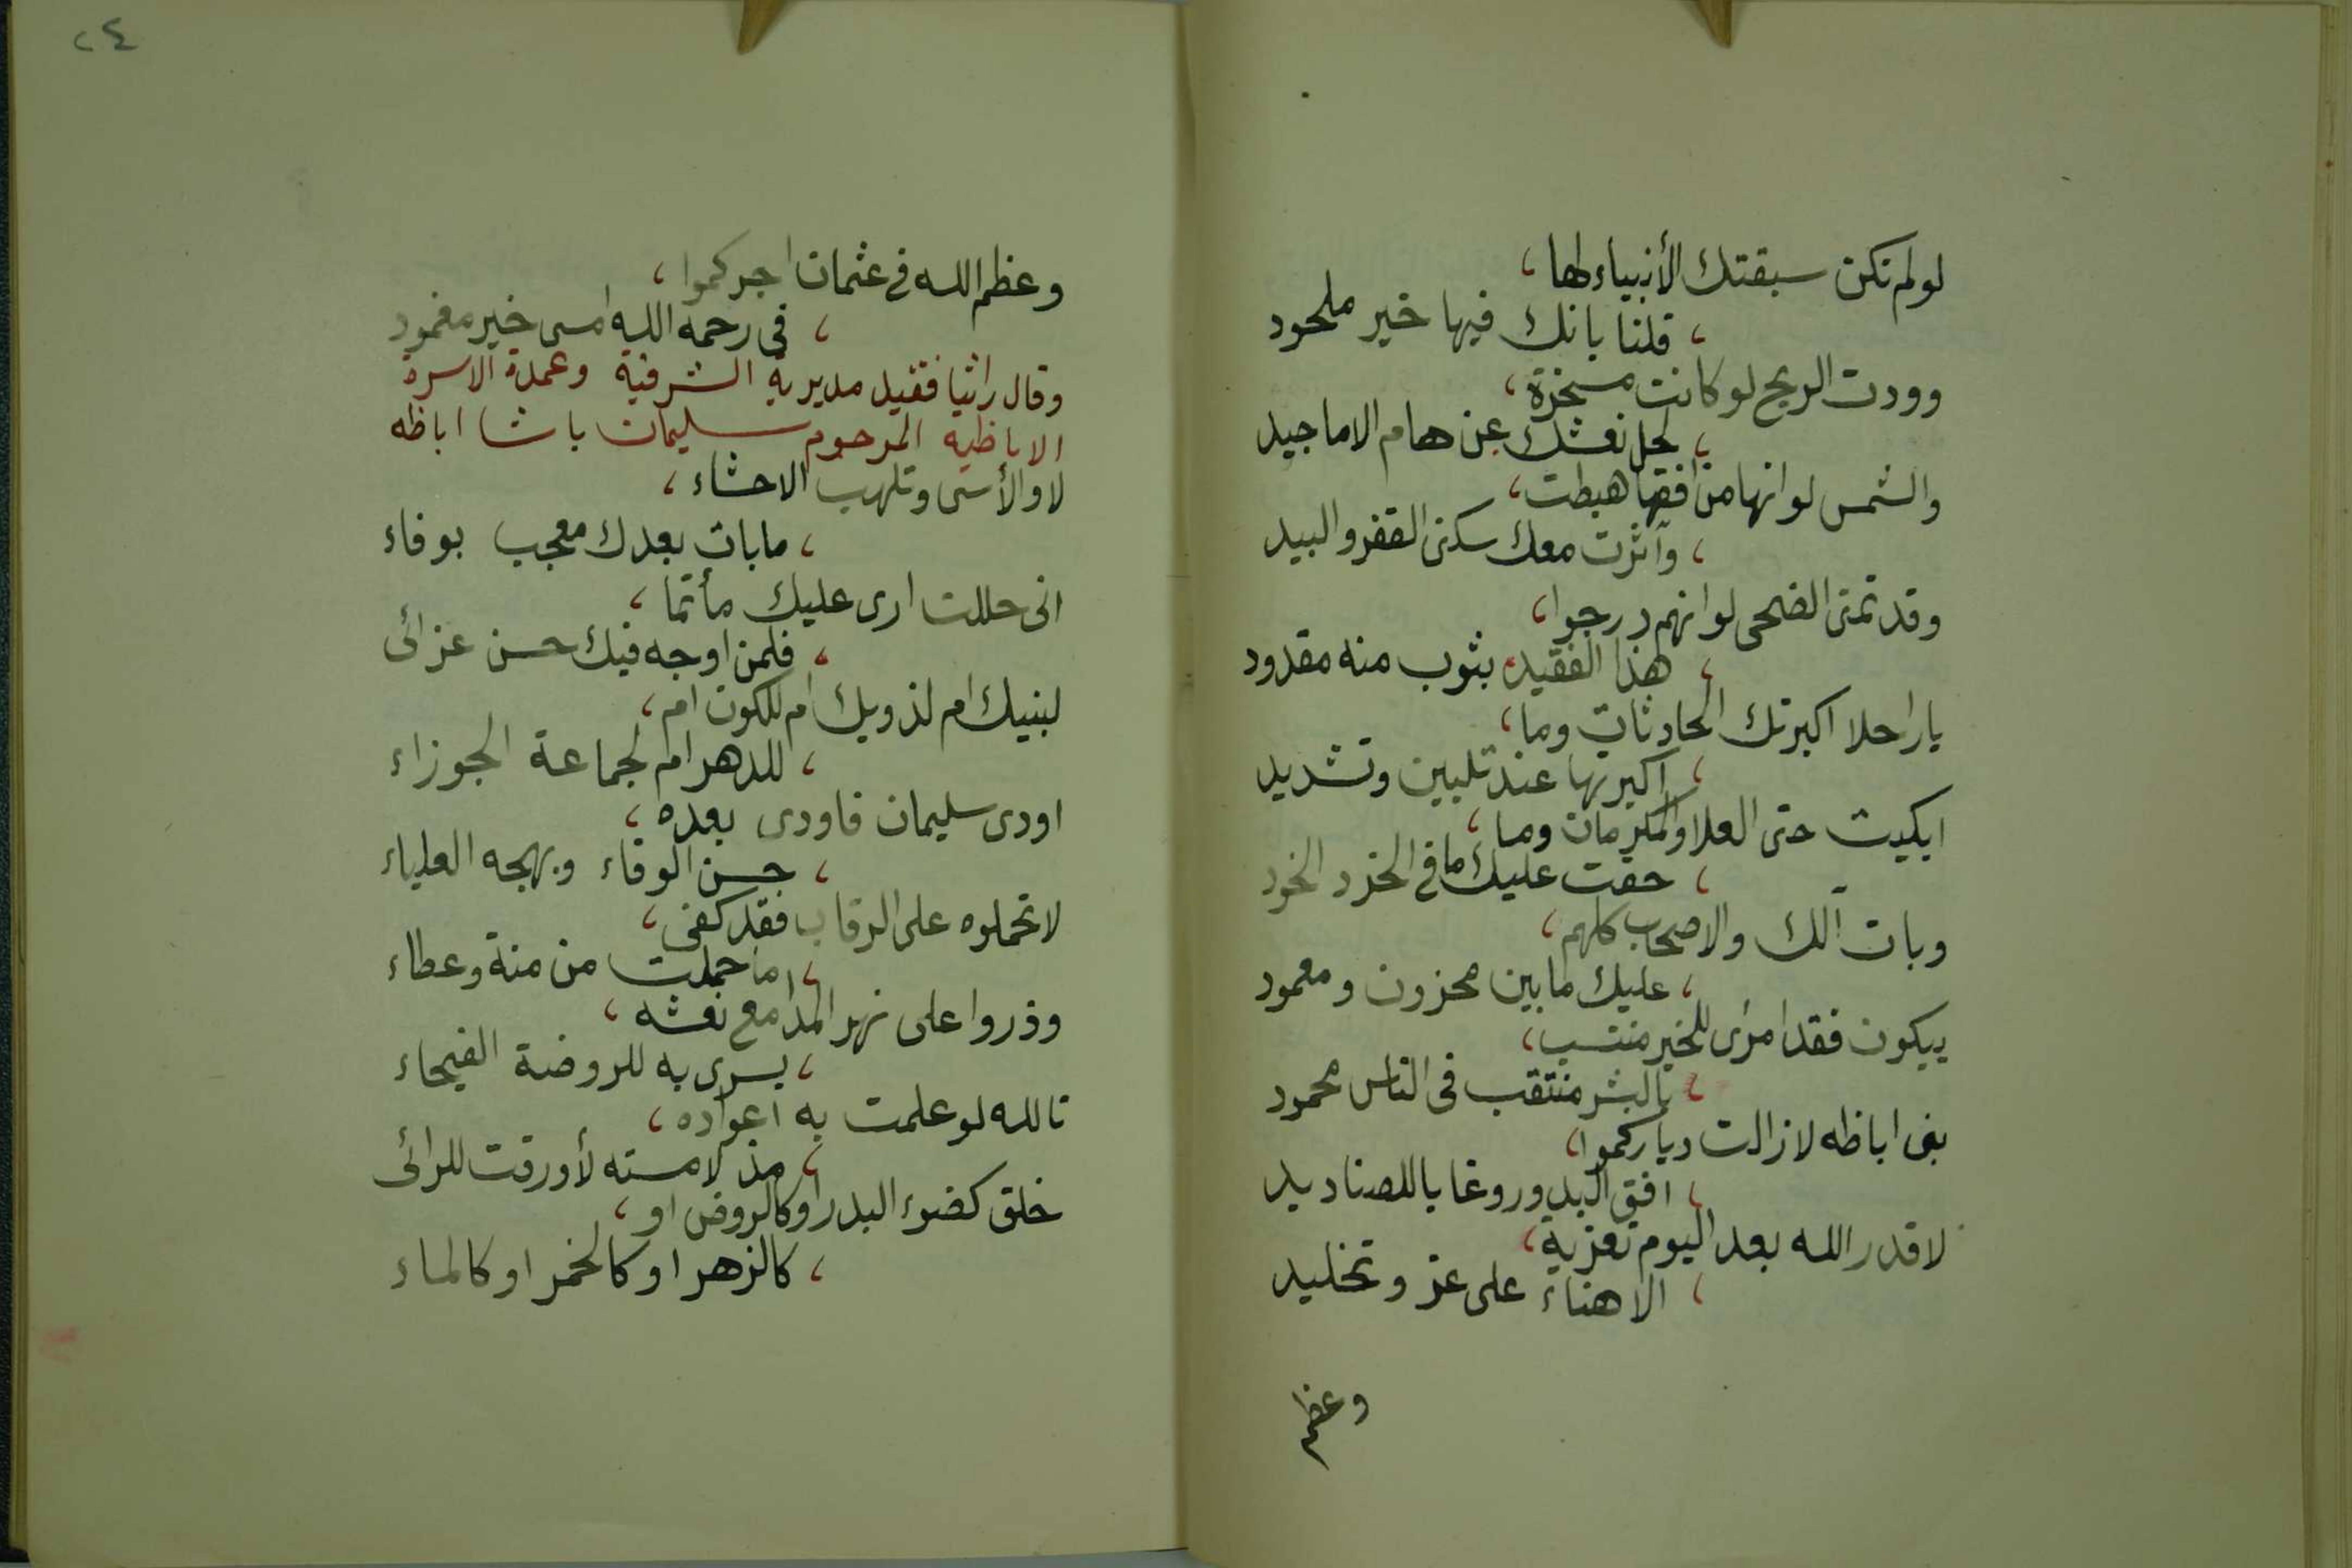 لولم تكن سبقتك الأنبياء لها،
، قلنا بانك فيها خير ملحود
وودت الريح لو كانت مسخرة،
، لحمل نعشك عن هام الاماجيد
والشمس لو انها من افقها هبطت،
، وآثرت معك سكنى القفر والبيد
وقد تمنى الضحى لو انهم درجوا،
، هذا الفقيد بثوب منه مقدود
يا راحلا اكبرتك الحادثات وما،
، اكبرتها عند تليين وتشديد
ابكيت حتى العلا والمكرمات وما،
، حقت عليك اما في الخرد الخود
وبات آلك والاصحاب كلهم،
، عليك ما بين محزون ومعمود
يبكون فقد امرئ للخير منتسب،
، بالبشر منتقب في الناس محمود
بنى اباظه لا زالت دياركموا،
، افق البدور وغابا للصناديد
لا قدر الله بعد اليوم تعزية،
، الا هناء على عز وتخليد
وعظم
٢٤
وعظم الله في عثمان اجركموا،
، في رحمة الله امسى خير مغمود
وقال راثيا فقيد مديرية الشرقية وعمدة الاسرة
الاباظية المرحوم سليمان باشا اباظه
لا والأسى وتلهب الاحشاء،
، ما بات بعدك معجب بوفاء
انى حللت ارى عليك مأتما،
، فلمن اوجه فيك حسن عزائى
لبنيك ام لذويك ام للكون ام،
، للدهر ام لجماعة الجوزاء
اودى سليمان فاودى بعده،
، حسن الوفاء وبهجه العلياء
لا تحملوه على الرقاب فقد كفى،
، ما حملت من منة وعطاء
وذروا على نهر المدامع نعشه،
، يسرى به للروضة الفيحاء
تالله لو علمت به اعواده،
، مذ لامسته لأورقت للرائى
خلق كضوء البدر او كالروض او،
، كالزهر او كالخمر او كالماء